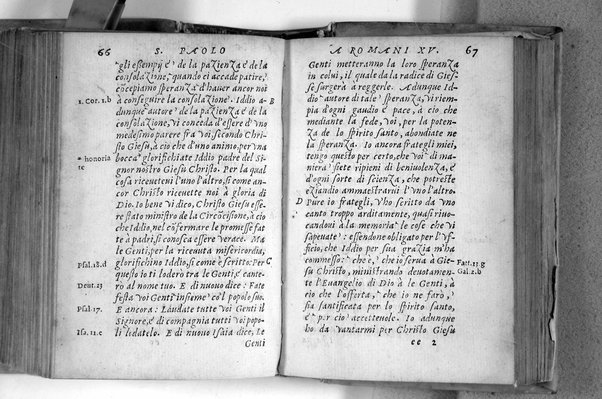 66 S. PAOLO
gli essempij e' de la pazienza e de la
consolazione, quando ci accade patire,
cōcepiamo speranza d'hauer ancor noi
1. Cor. 1. b à conseguire la consolazione. Iddio a- B
dunque autore de la pazienza e de la
consolazione, vi conceda d'essere d'vno
medesimo parere fra voi, secondo Chri-
sto Giesù, à cio che d'uno animo, per vna
* honoria bocca glorifichiate Iddio padre del Si-
te gnor nostro Giesù Christo. Per la qual
cosa riceueteui l'uno l'altro, si come an-
cor Christo riceuette noi à gloria di
Dio. Io bene vi dico, Christo Giesu esse-
re stato ministro de la Circōcisione, à cio
che Iddio, nel cōfermare le promesse fat
te à padri, si conosca essere verace. Ma
le Genti, per la riceuuta misericordia,
Psal. 18. d glorifichino Iddio, si come è scritto: Per C
questo io ti loderò tra le Genti, e cante-
Deut. 23 rò al nome tuo. E di nuouo dice: Fate
festa voi Genti insieme co'l popolo suo.
Psal. 17. E ancora: Laudate tutte voi Genti il
Signore, e di compagnia tutti voi popo-
Isa. 11. c li lodatelo. E di nuouo Isaia dice, Le
Genti
A ROMANI XV. 67
Genti metteranno la loro speranza
in colui, il quale da la radice di Gies-
se surgerà a reggerle. Adunque Id-
dio autore di tale speranza, vi riem-
pia d'ogni gaudio e pace, à cio che
mediante la fede, voi, per la poten-
za de lo spirito santo, abondiate ne
la speranza. Io ancora frategli miei,
tengo questo per certo, che voi di ma-
niera siete ripieni di beniuolenza, e
d'ogni sorte di scienza, che potreste
eziandio ammaestrarui l'vno l'altro.
D Pure io frategli, v'ho scritto da vno
canto troppo arditamente, quasi riuo-
candoui à la memoria le cose che vi
sapeuate: essendone obligato per l'Vf-
ficio, che Iddio per sua grazia m'ha
commesso: che è, che io serua à Gie- Fatt. 13 g
su Christo, ministrando deuotamen- Gal. 2. b
te l'Euangelio di Dio à le Genti, à
cio che l'offerta, che io ne farò,
sia santificata per lo spirito santo,
e per cio accetteuole. Io adunque
ho da vantarmi per Christo Giesù
cc 2